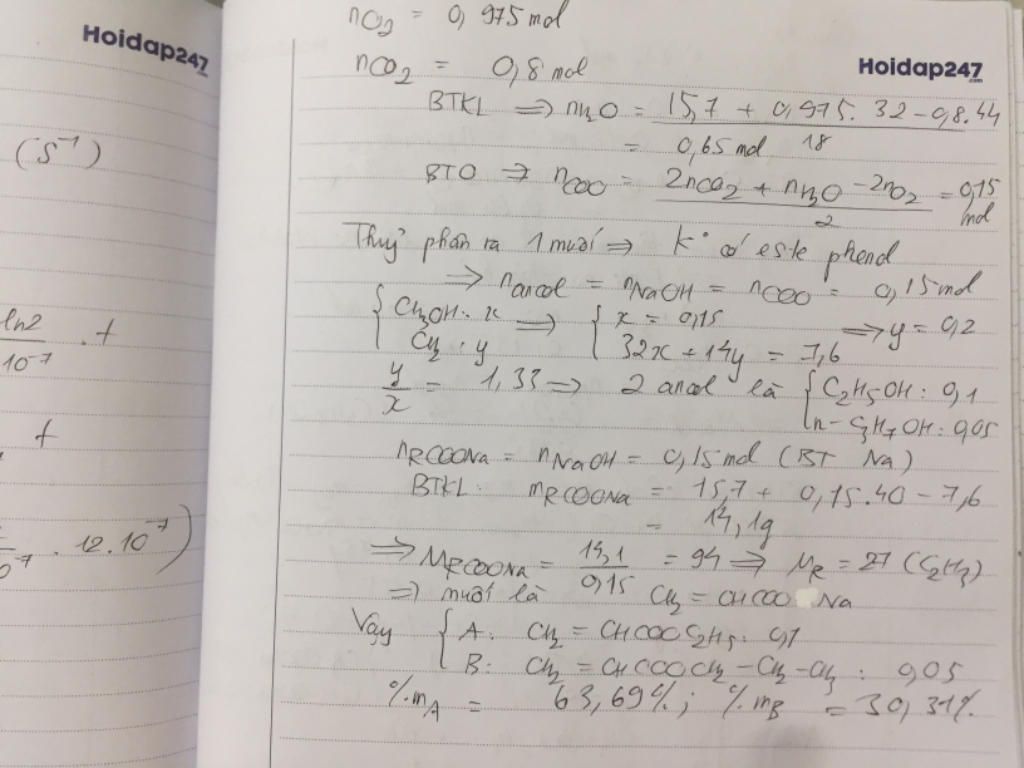 Hoidap247
(s⁻¹)
ln2/10⁻⁷ . t
t
⁻⁷ . 12.10⁻⁷)
nO₂ = 0,975 mol
Hoidap247.com
nCO₂ = 0,8 mol
BTKL ⇒ nH₂O = (15,7 + 0,975. 32 - 0,8.44)/18
= 0,65 mol
BTO ⇒ nCOO = (2nCO₂ + nH₂O - 2nO₂)/2 = 0,15 mol
Thuỷ phân ra 1 muối ⇒ k° có este phenol
⇒ nancol = nNaOH = nCOO = 0,15 mol
{ CH₃OH: x ⇒ { x = 0,15 ⇒ y = 0,2
CH₂ : y 32x + 14y = 7,6
y/x = 1,33 ⇒ 2 ancol là { C₂H₅OH: 0,1
n-C₃H₇OH: 0,05
nRCOONa = nNaOH = 0,15 mol (BT Na)
BTKL: mRCOONa = 15,7 + 0,15.40 - 7,6
= 14,1g
⇒ MRCOONa = 14,1/0,15 = 94 ⇒ MR = 27 (C₂H₃)
⇒ muối là CH₂ = CHCOO Na
Vậy { A: CH₂ = CHCOOC₂H₅: 0,1
B: CH₂ = CHCOOCH₂-CH₂-CH₃ : 0,05
%mA = 63,69%; %mB = 30,31%.